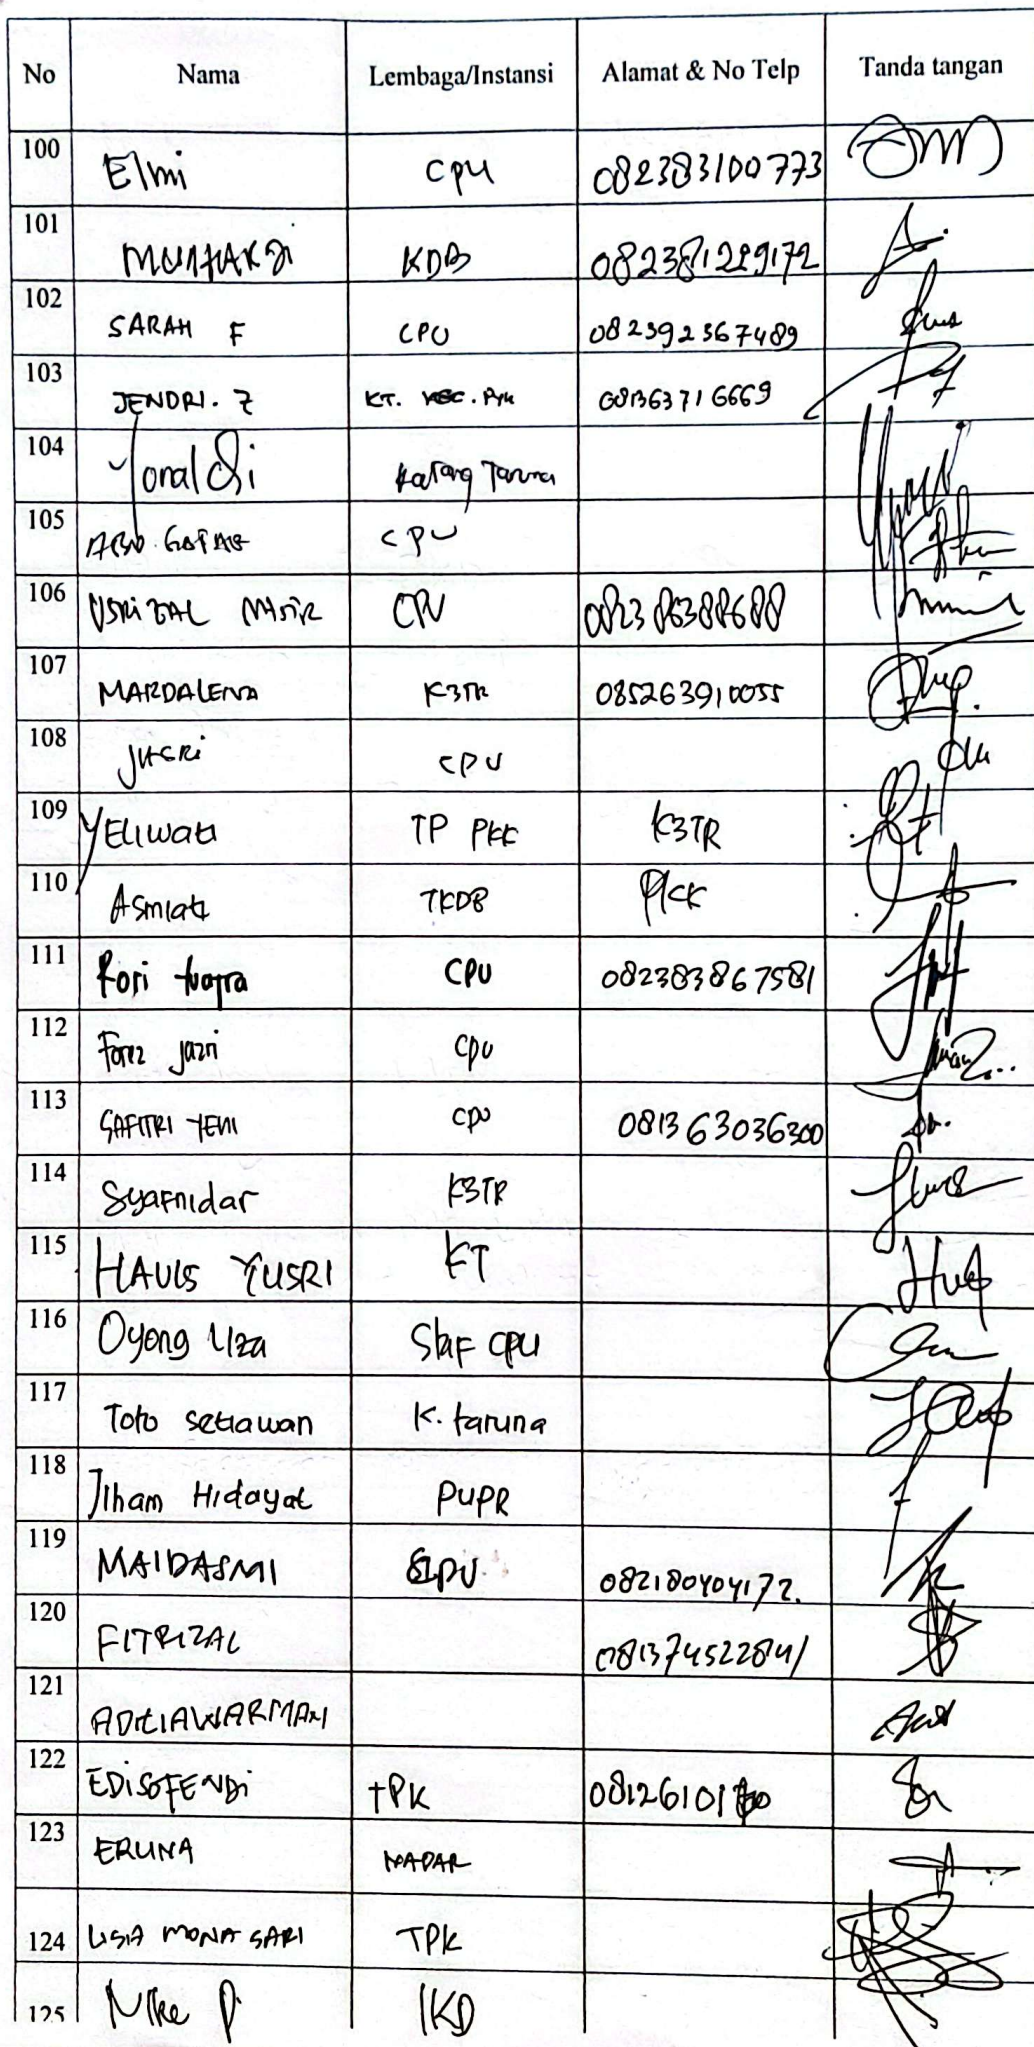 No Nama Lembaga/Instansi Alamat & No Telp Tanda tangan
100 Elmi CPU 082383100773
101 KDB 082381229172
102 SARAH F CPU 082392367489
103 JENDRI. Z KT. KEC. PYK 081363716669
104 Yonaldi Karang Taruna
105 CPU
106 USRIZAL NASIR CPU 082386388688
107 MARDALENA K3TR 085263910055
108 JUSRI CPU
109 YELIWATI TP PKK K3TR
110 Asmiati TKDB PKK
111 Rori CPU 082383867581
112 CPU
113 SAFITRI YENI CPU 081363036300
114 Syafnidar K3TR
115 HAUIS YUSRI KT
116 Oyong Uza Staf CPU
117 Toto setiawan K. taruna
118 Ilham Hidayat PUPR
119 MAIDASMI CPU 082180404172.
120 FITRIZAL 081374522841
121 ADITIAWARMAN
122 EDISOFENDI TPK
123 ERLINA
124 LISIA MONA SARI TPK
125 Mike P. IKD